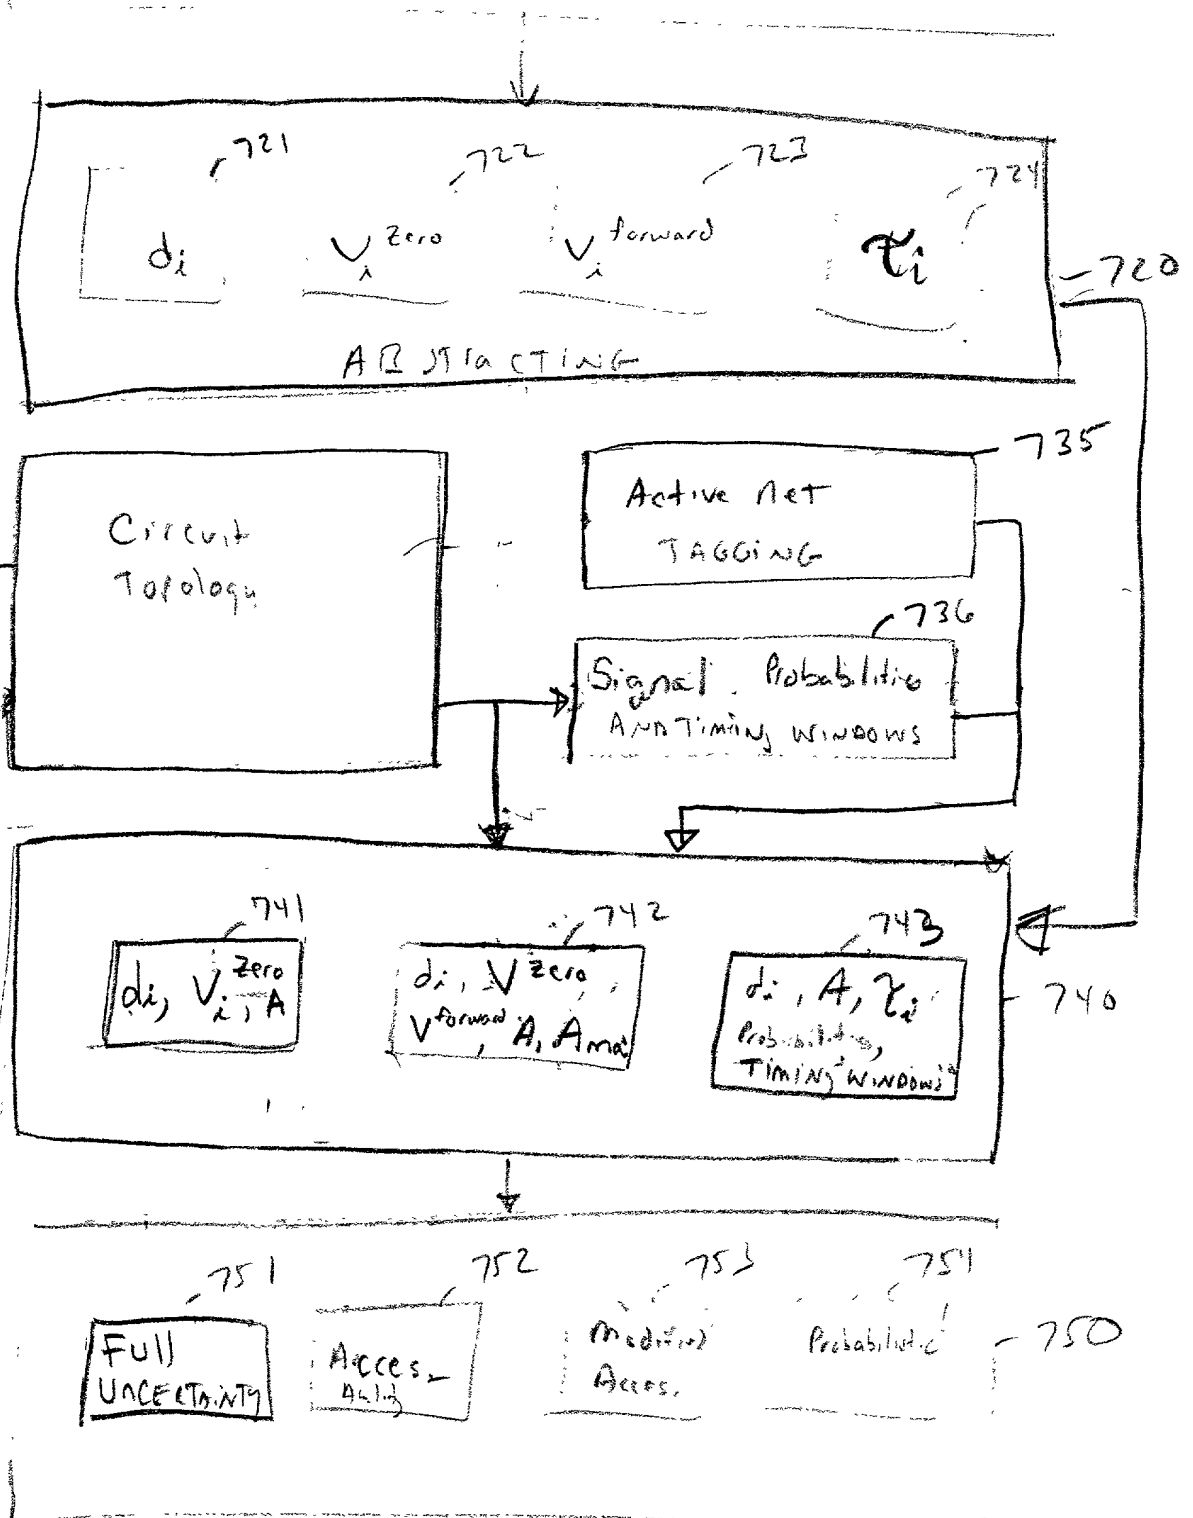 721
722
723
724
di
Vi zero
Vi forward
τi
720
ABSTRACTING
735
Circuit
Topology
Active Net
TAGGING
736
Signal Probabilities
AND Timing WINDOWS
741
742
743
di, Vi zero, A
di, V zero,
V forward, A, Ama
di, A, τi
Probabilities,
Timing WINDOWS
740
751
752
753
754
Full
UNCERTAINTY
Acces-
Modified
Acces.
Probabilistic
750